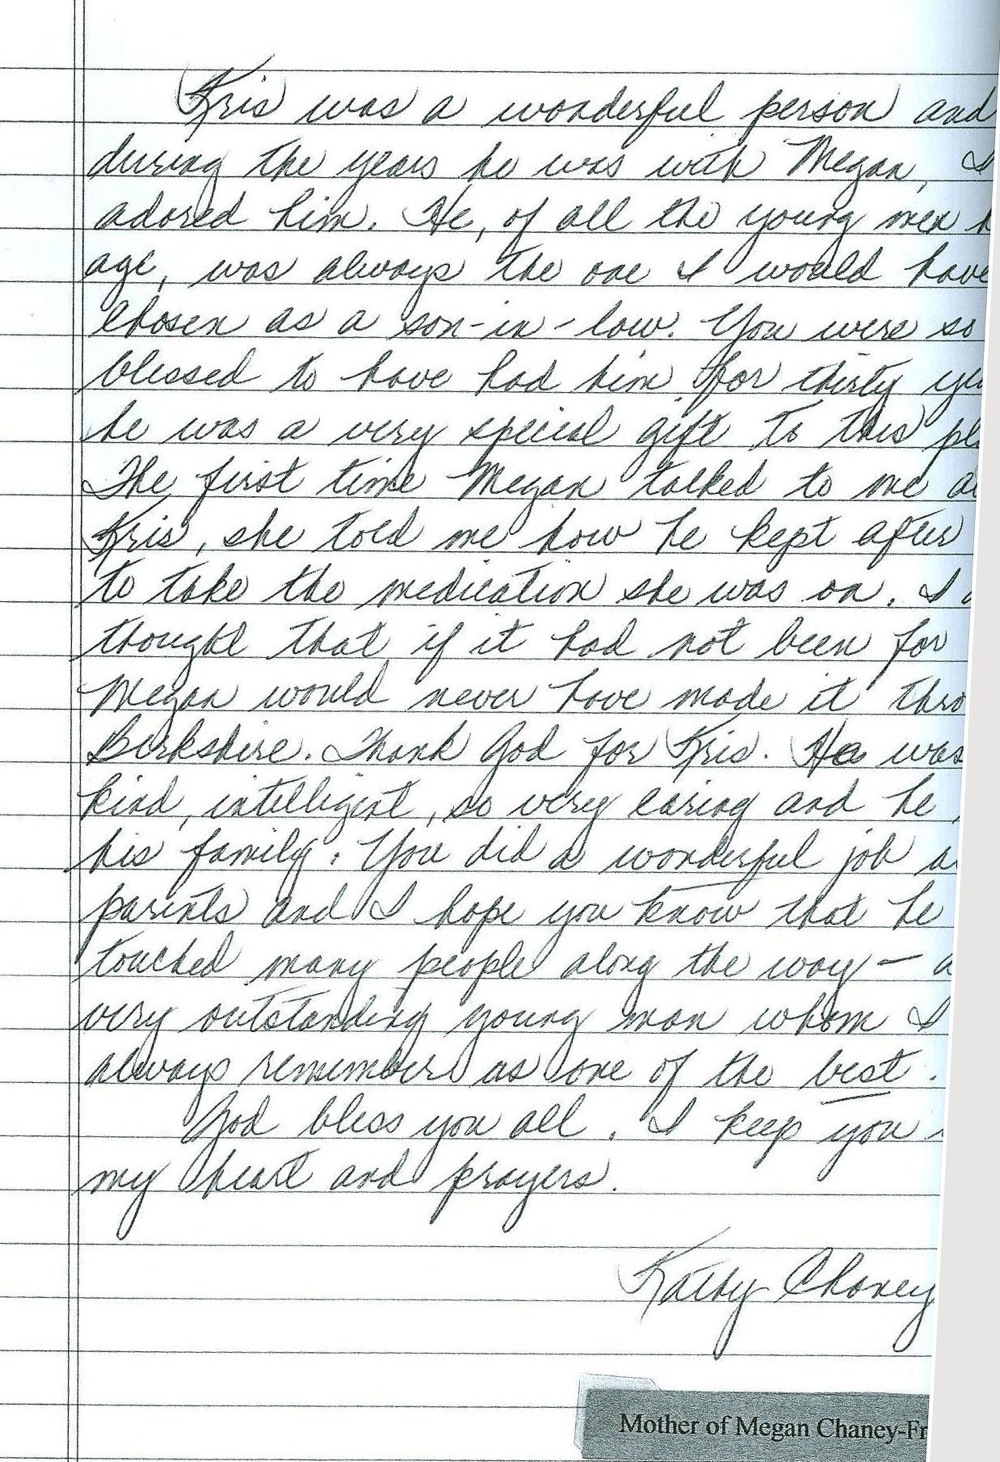 Kris was a wonderful person and
during the years he was with Megan, I
adored him. He, of all the young men h
age, was always the one I would have
chosen as a son-in-law. You were so
blessed to have had him for thirty ye
he was a very special gift to this pl
The first time Megan talked to me a
Kris, she told me how he kept after
to take the medication she was on. I
thought that if it had not been for
Megan would never have made it thro
Berkshire. Thank God for Kris. He was
kind, intelligent, so very caring and he
his family. You did a wonderful job a
parents and I hope you know that he
touched many people along the way — a
very outstanding young man whom I
always remember as one of the best.
God bless you all. I keep you i
my heart and prayers.
Kathy Chaney
Mother of Megan Chaney-Fr